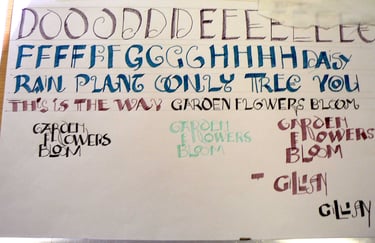 DOOODDDDEEEEEEEEE
FFFFFFGGGGHHHH DAISY
RAIN PLANT OONLY TREE YOU
THIS IS THE WAY GARDEN FLOWERS BLOOM
GARDEN
FLOWERS
BLOOM
GARDEN
FLOWERS
BLOOM
GARDEN
FLOWERS
BLOOM